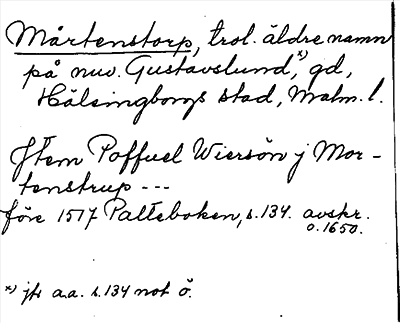 Mårtenstorp, trol. äldre namn
på nuv. Gustavslund,ˣ⁾ gd,
Hälsingborgs stad, Malm. l.
Jtem Poffuel Wiersön j Mor-
tenstrup ---
före 1517 Palteboken, s. 134. avskr.
o. 1650.
ˣ⁾ jfr a.a. s. 134 not ö.